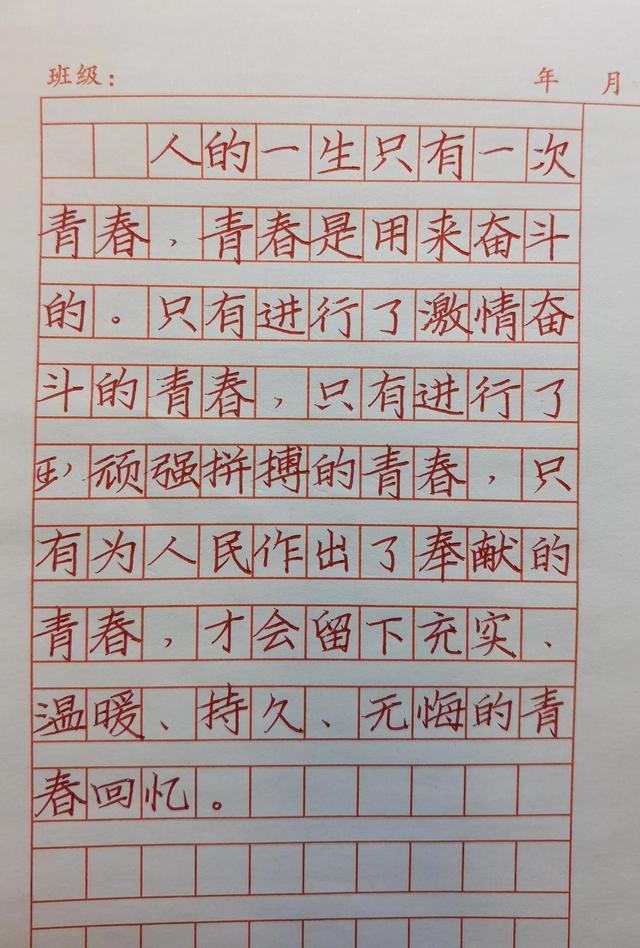 班级： 年 月
人的一生只有一次
青春，青春是用来奋斗
的。只有进行了激情奋
斗的青春，只有进行了
顽强拼搏的青春，只
有为人民作出了奉献的
青春，才会留下充实、
温暖、持久、无悔的青
春回忆。